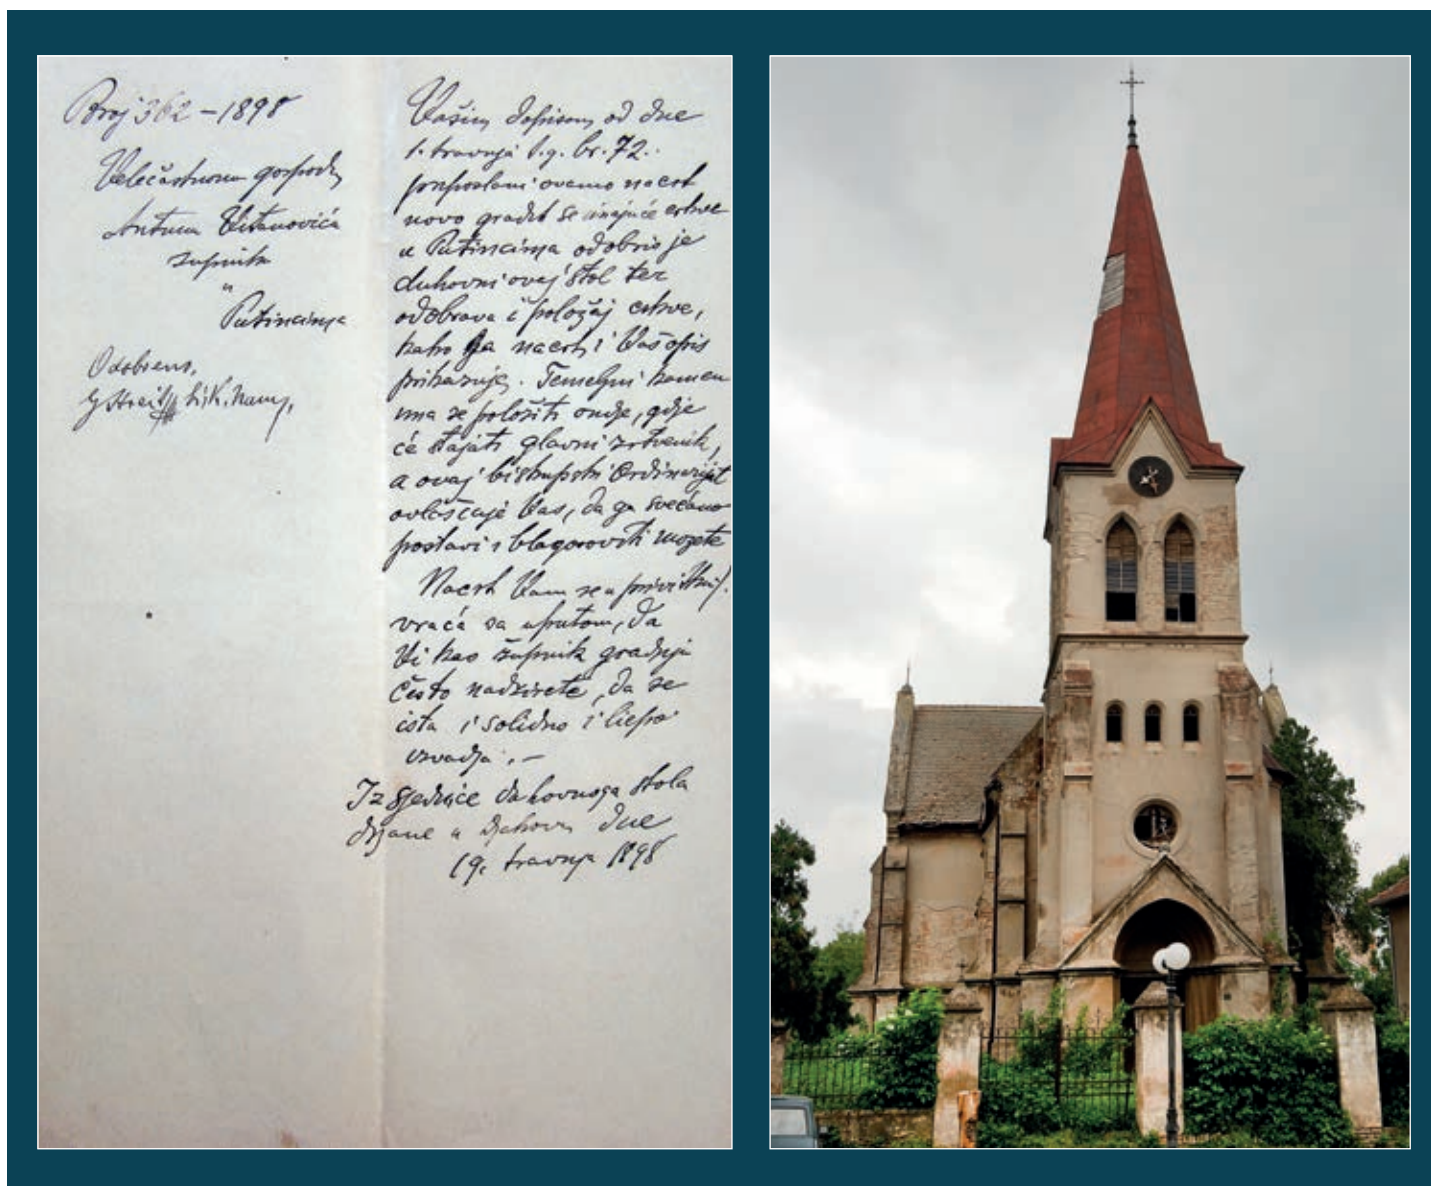 Broj 362 – 1898
Velečastnom gospodinu
Antunu Vitanoviću
župnik
"
Putincima
Odobreno,
bisk. Namj.
Vašim dopisom od dne
1. travnja t.g. br. 72.
priposlani ovamo nacrt
novo gradit se imajuće crkve
u Putincima odobrio je
duhovni ovaj stol ter
odobrava i položaj crkve,
kako ga nacrt i Vaš opis
prikazuje. Temeljni kamen
ima se položiti ondje, gdje
će stajati glavni žrtvenik,
a ovaj biskupski Ordinarijat
ovlašćuje Vas, da ga svečano
postavi i blagosoviti možete
Nacrt Vam se u privitku /.
vraća sa uputom, da
Vi kao župnik gradnju
često nadzirete, da se
ista i solidno i liepo
izvadja. –
Iz sjednice duhovnoga stola
držane u Djakovu dne
19. travnja 1898